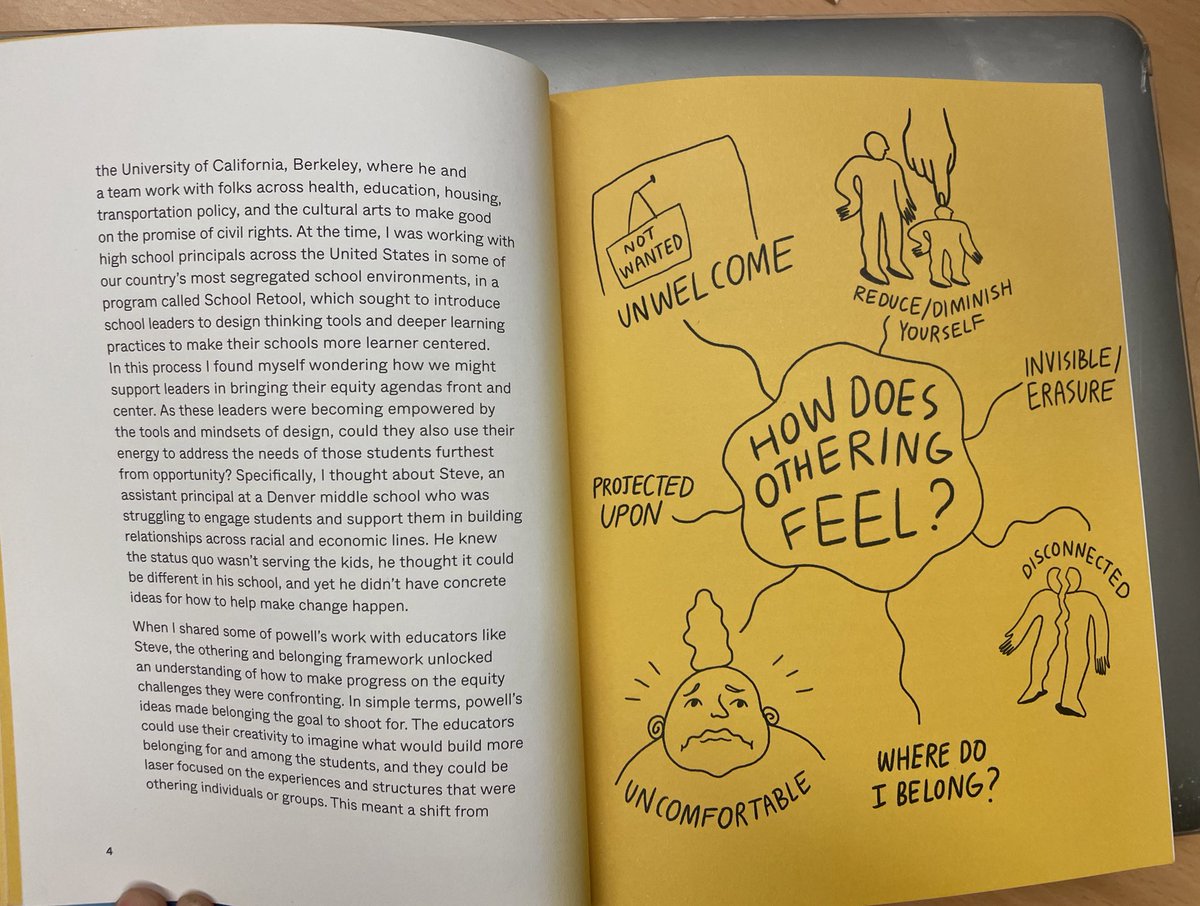 the University of California, Berkeley, where he and
a team work with folks across health, education, housing,
transportation policy, and the cultural arts to make good
on the promise of civil rights. At the time, I was working with
high school principals across the United States in some of
our country's most segregated school environments, in a
program called School Retool, which sought to introduce
school leaders to design thinking tools and deeper learning
practices to make their schools more learner centered.
In this process I found myself wondering how we might
support leaders in bringing their equity agendas front and
center. As these leaders were becoming empowered by
the tools and mindsets of design, could they also use their
energy to address the needs of those students furthest
from opportunity? Specifically, I thought about Steve, an
assistant principal at a Denver middle school who was
struggling to engage students and support them in building
relationships across racial and economic lines. He knew
the status quo wasn't serving the kids, he thought it could
be different in his school, and yet he didn't have concrete
ideas for how to help make change happen.
When I shared some of powell's work with educators like
Steve, the othering and belonging framework unlocked
an understanding of how to make progress on the equity
challenges they were confronting. In simple terms, powell's
ideas made belonging the goal to shoot for. The educators
could use their creativity to imagine what would build more
belonging for and among the students, and they could be
laser focused on the experiences and structures that were
othering individuals or groups. This meant a shift from
4
NOT
WANTED
UNWELCOME
REDUCE/DIMINISH
YOURSELF
INVISIBLE/
ERASURE
HOW DOES
OTHERING
FEEL?
PROJECTED
UPON
DISCONNECTED
UNCOMFORTABLE
WHERE DO
I BELONG?